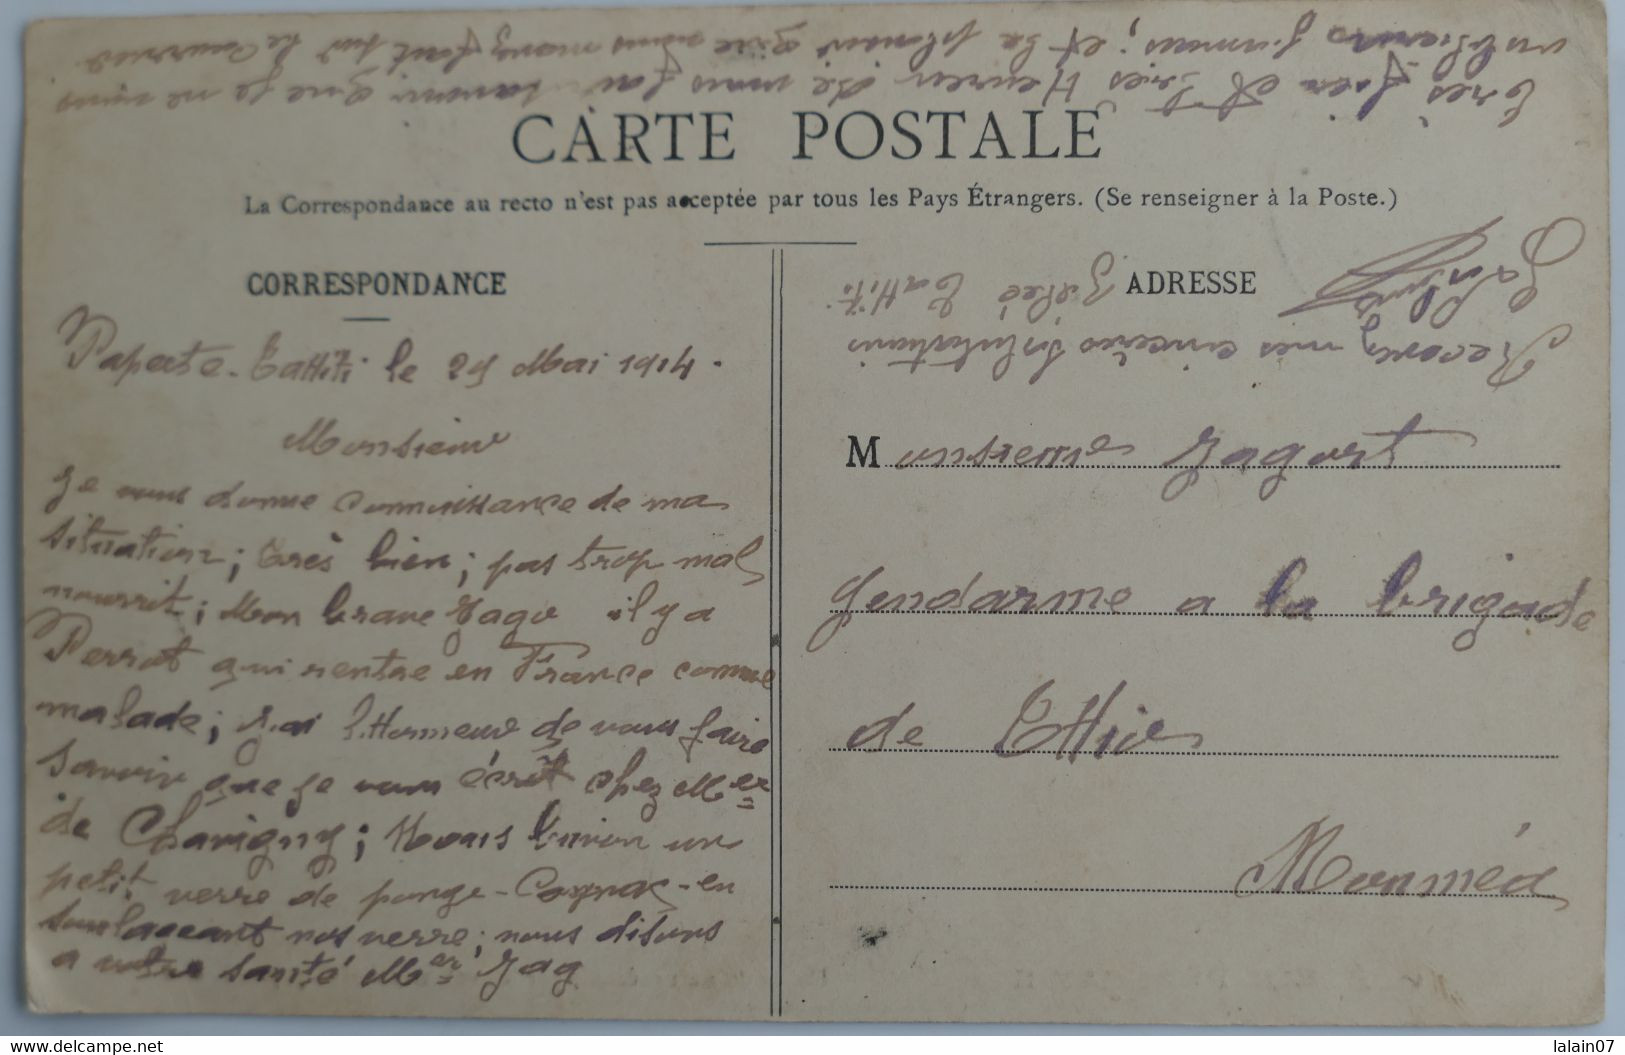 CARTE POSTALE
La Correspondance au recto n'est pas acceptée par tous les Pays Étrangers. (Se renseigner à la Poste.)
CORRESPONDANCE
Papeete-Tattiti le 29 Mai 1914.
Monsieur
Je vous donne connaissance de ma
situation; très bien; pas trop mal
nourrit; Mon brave Jago il y a
Perrot qui rentre en France comme
malade; J.ai l.Honneur de vous faire
savoir que je vous écrit chez Mer
de Chavigny; Nous buvon un
petit verre de Cognac - en
nos verre; nous disons
a votre santé Mer Jag
très fier et très Heureu de vous fair savoir que je ne vous
oublierais jamais; et le que vous mavez fait sur le
ADRESSE
Recevez mes sincères salutations
Tattiti
Monsieur Jagort
Gendarme a la brigade
de